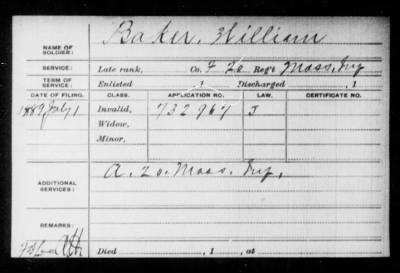 NAME OF SOLDIER: Baker, William
SERVICE: Late rank, Co. F 20 Reg't Mass. Inf
TERM OF SERVICE: Enlisted , 1 Discharged , 1
DATE OF FILING. CLASS. APPLICATION NO. LAW. CERTIFICATE NO.
1889 July 1 Invalid, 732967 J
Widow,
Minor,
ADDITIONAL SERVICES: A. 20. Mass. Inf.
REMARKS:
Died , 1 , at